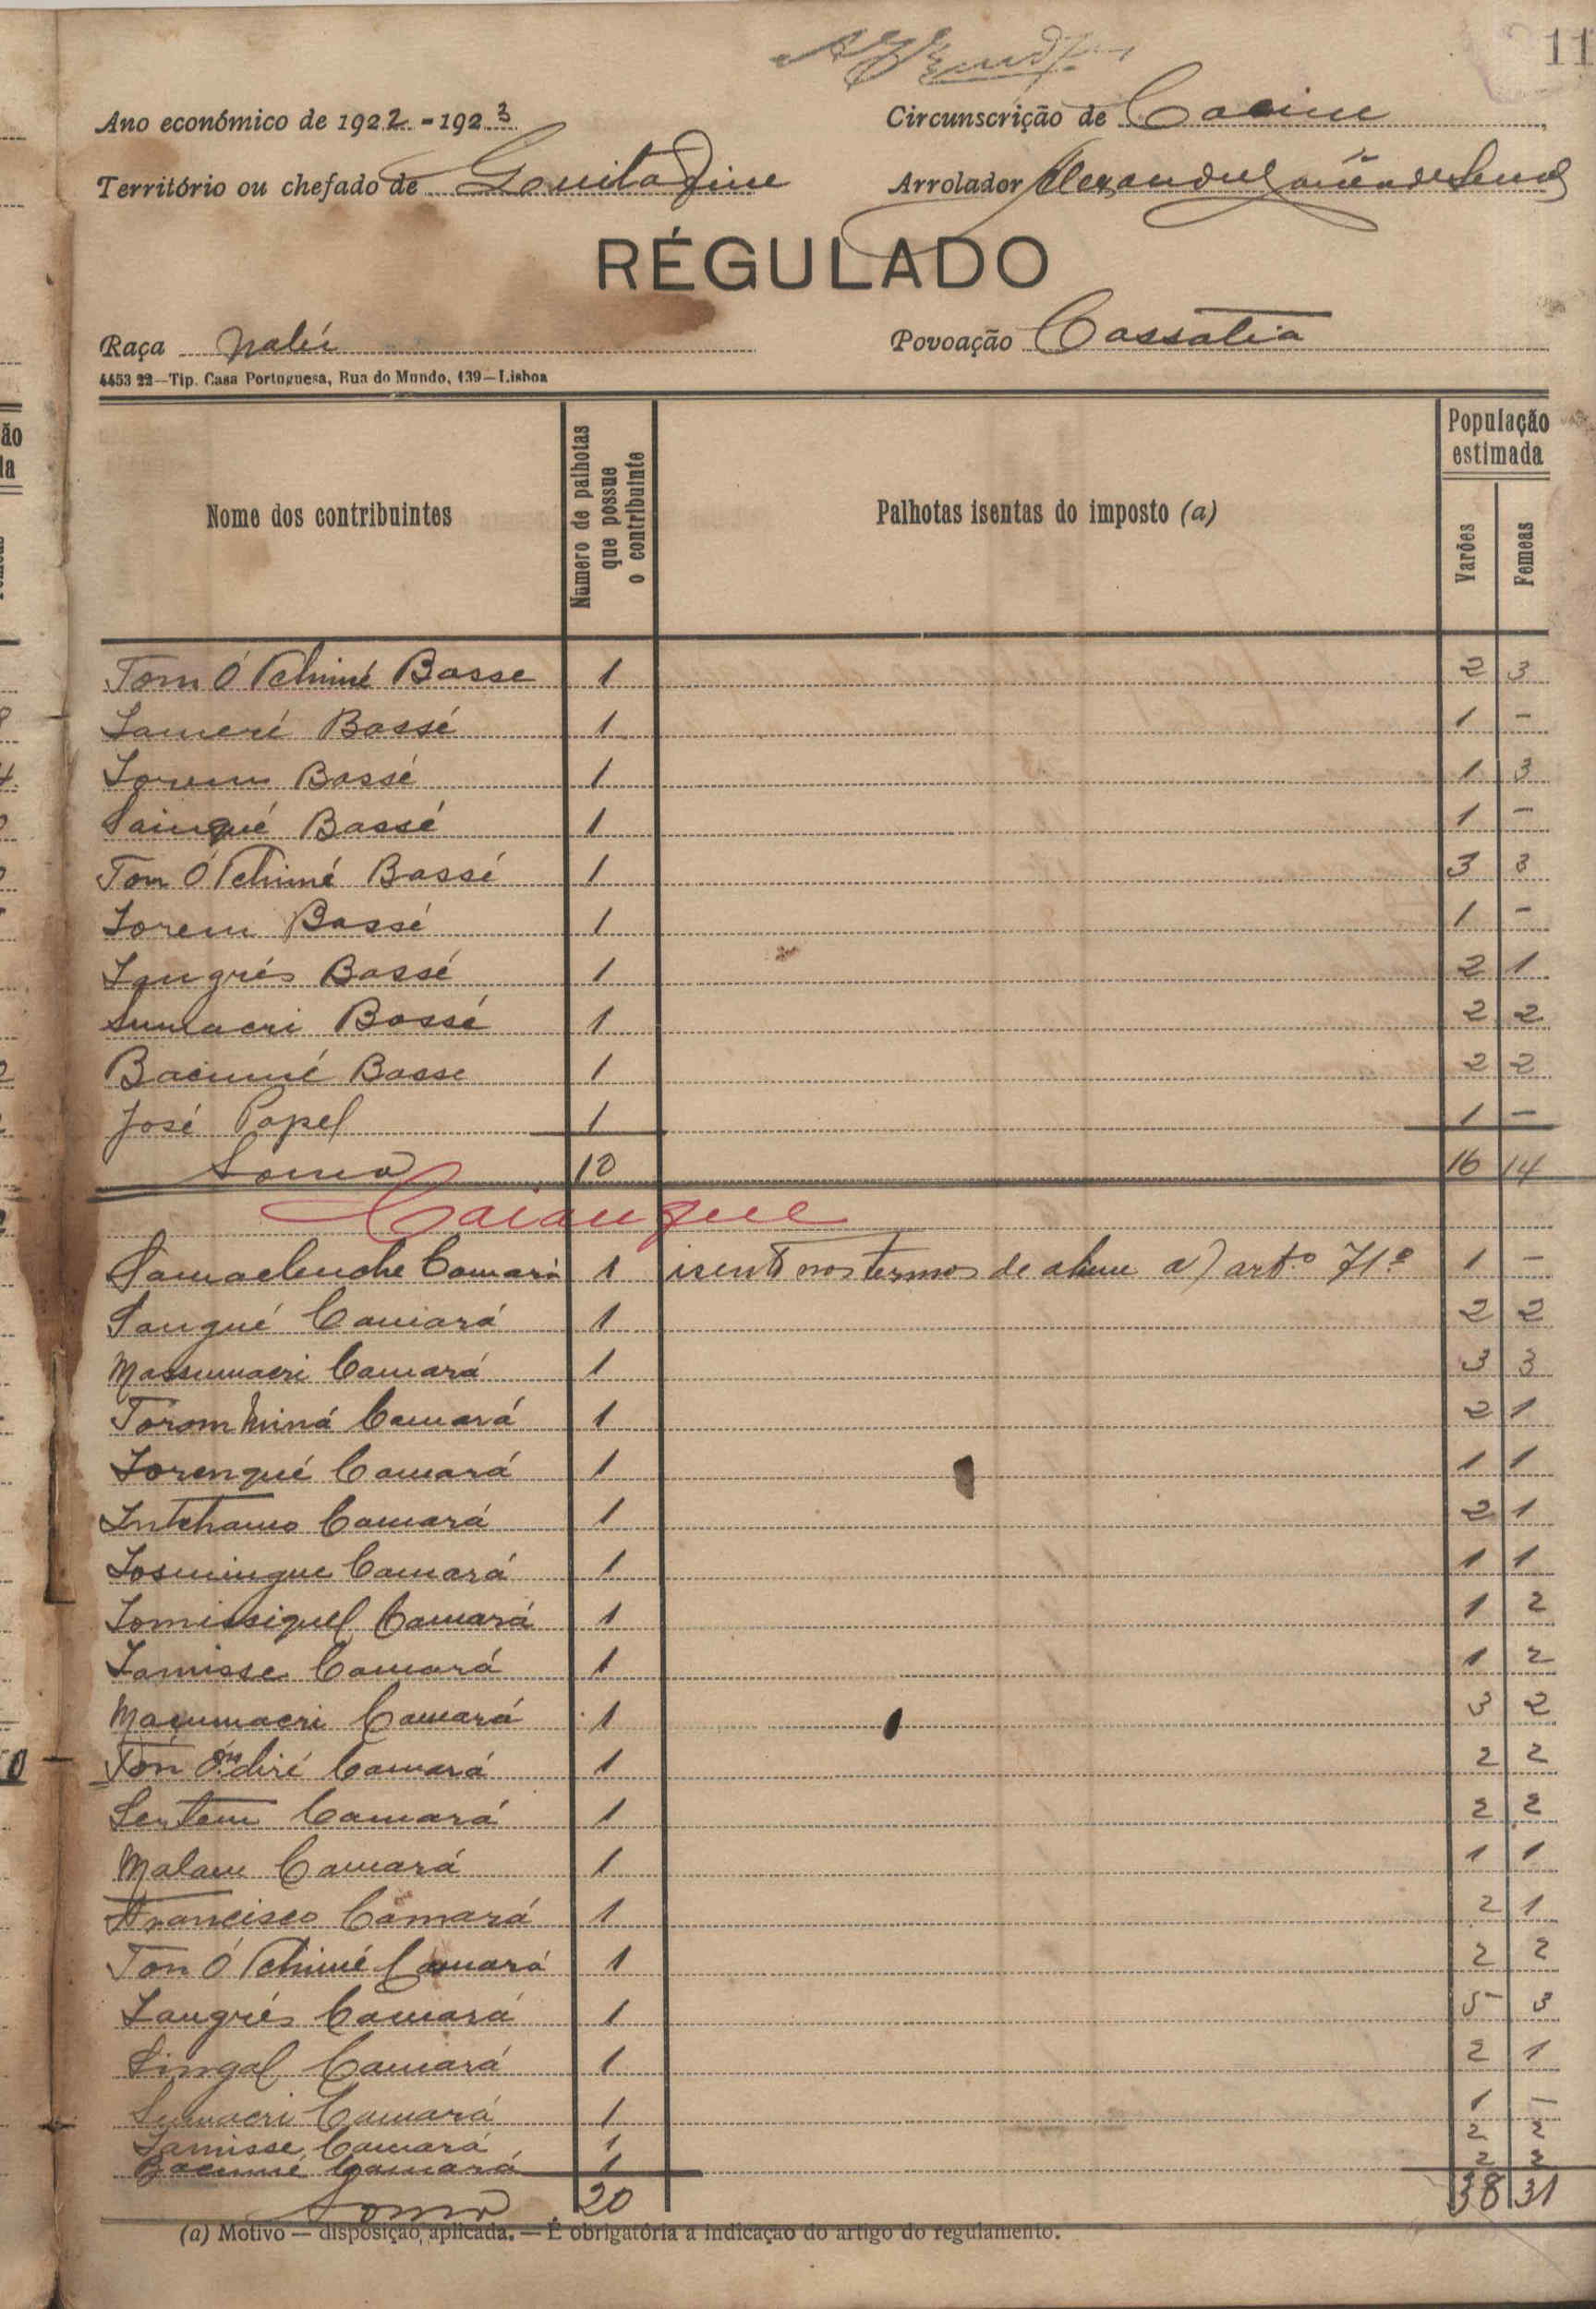 11
Ano económico de 1922-1923
Circunscrição de Cacine
Território ou chefado de Guitafine
Arrolador
RÉGULADO
Raça Nalú
Povoação Cassatia
4453 22—Tip. Casa Portuguesa, Rua do Mundo, 139—Lisboa
Nome dos contribuintes
Numero de palhotas que possue o contribuinte
Palhotas isentas do imposto (a)
População estimada
Varões
Femeas
Tom Ó Tchimé Basse 1 2 3
Lameré Bassé 1 1 -
Lorem Bassé 1 1 3
Sainqué Bassé 1 1 -
Ton Ó Tchimé Bassé 1 3 3
Lorem Bassé 1 1 -
Langrés Bassé 1 2 1
Sumacri Bassé 1 2 2
Bacumé Basse 1 2 2
José Papel 1 1 -
Soma 10 16 14
Caianque
Camará 1 isento nos termos de alinea a) artº 71º 1 -
Sangué Camará 1 2 2
Massumacri Camará 1 3 3
Torom Miná Camará 1 2 1
Lorenqué Camará 1 1 1
Intchamo Camará 1 2 1
Losmingue Camará 1 1 1
Lomissiquel Camará 1 1 2
Lamisse Camará 1 1 2
Maçumacri Camará 1 3 2
Ton Óndiré Camará 1 2 2
Sentem Camará 1 2 2
Malam Camará 1 1 1
Francisco Camará 1 2 1
Ton Ó Tchimé Camará 1 2 2
Langrés Camará 1 5 3
Singal Camará 1 2 1
Sumacri Camará 1 1 -
Lamisse Camará 1 2 2
Bacumé Camará 1 2 2
Soma 20 38 31
(a) Motivo — disposição aplicada. — É obrigatória a indicação do artigo do regulamento.